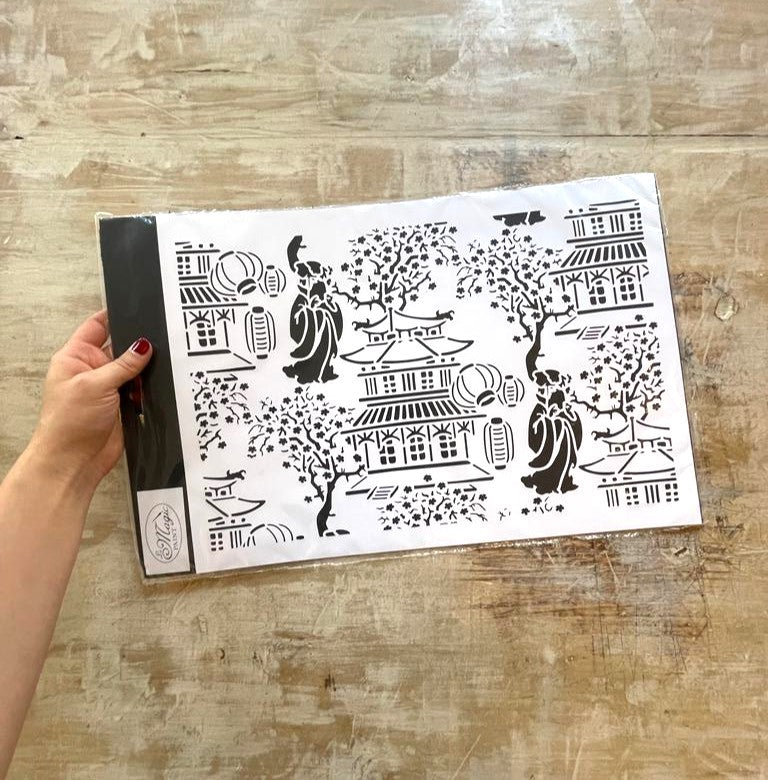 Magic
PAINT